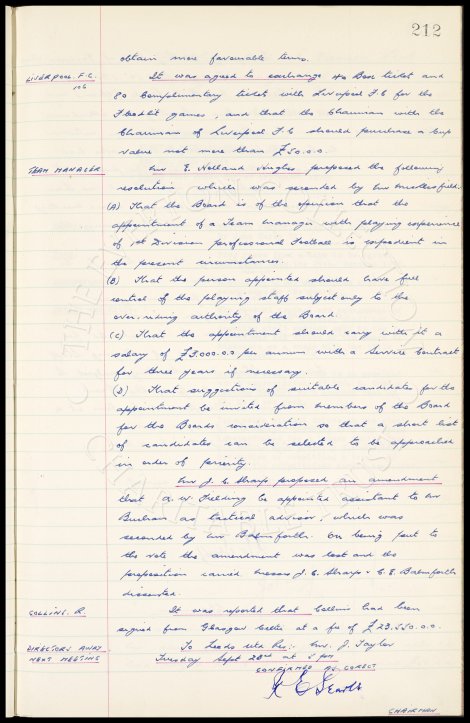 212
obtain more favourable terms.
LIVERPOOL. F.C. It was agreed to exchange 40 Box ticket and
106 80 Complimentary tickets with Liverpool F.C for the
Floodlit games, and that the Chairman with the
Chairman of Liverpool F.C should purchase a cup
value not more than £50.0.0.
TEAM MANAGER Mr E. Holland Hughes proposed the following
resolution which was seconded by Mr Micklesfield.
(A) That the Board is of the opinion that the
appointment of a Team Manager with playing experience
of 1st Division professional Football is expedient in
the present circumstances.
(B) That the person appointed should have full
control of the playing staff subject only to the
over-riding authority of the Board.
(C) That the appointment should carry with it a
salary of £3,000.0.0 per annum with a Service Contract
for three years if necessary.
(D) That suggestions of suitable candidates for the
appointment be invited from members of the Board
for the Boards consideration so that a short list
of candidates can be selected to be approached
in order of priority.
Mr J. C. Sharp proposed an amendment
that A. W. Fielding be appointed assistant to Mr
Buchan as tactical advisor, which was
seconded by Mr Balmforth. On being put to
the vote the amendment was lost and the
proposition carried. Messrs J. C. Sharp & C. E. Balmforth
dissented.
COLLINS. R. It was reported that Collins had been
signed from Glasgow Celtic at a fee of £23,550.0.0.
DIRECTORS AWAY To Leeds Utd Res:- Mr. J. Taylor
NEXT MEETING Tuesday Sept 23rd at 5 pm
CONFIRMED AS CORRECT
CHAIRMAN